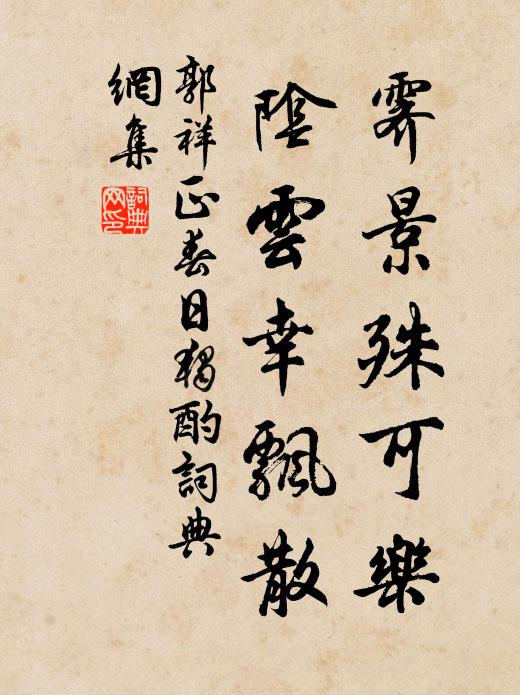 霽景殊可樂
陰雲幸飄散
郭祥正春日獨酌詞典
網集
詞典網印